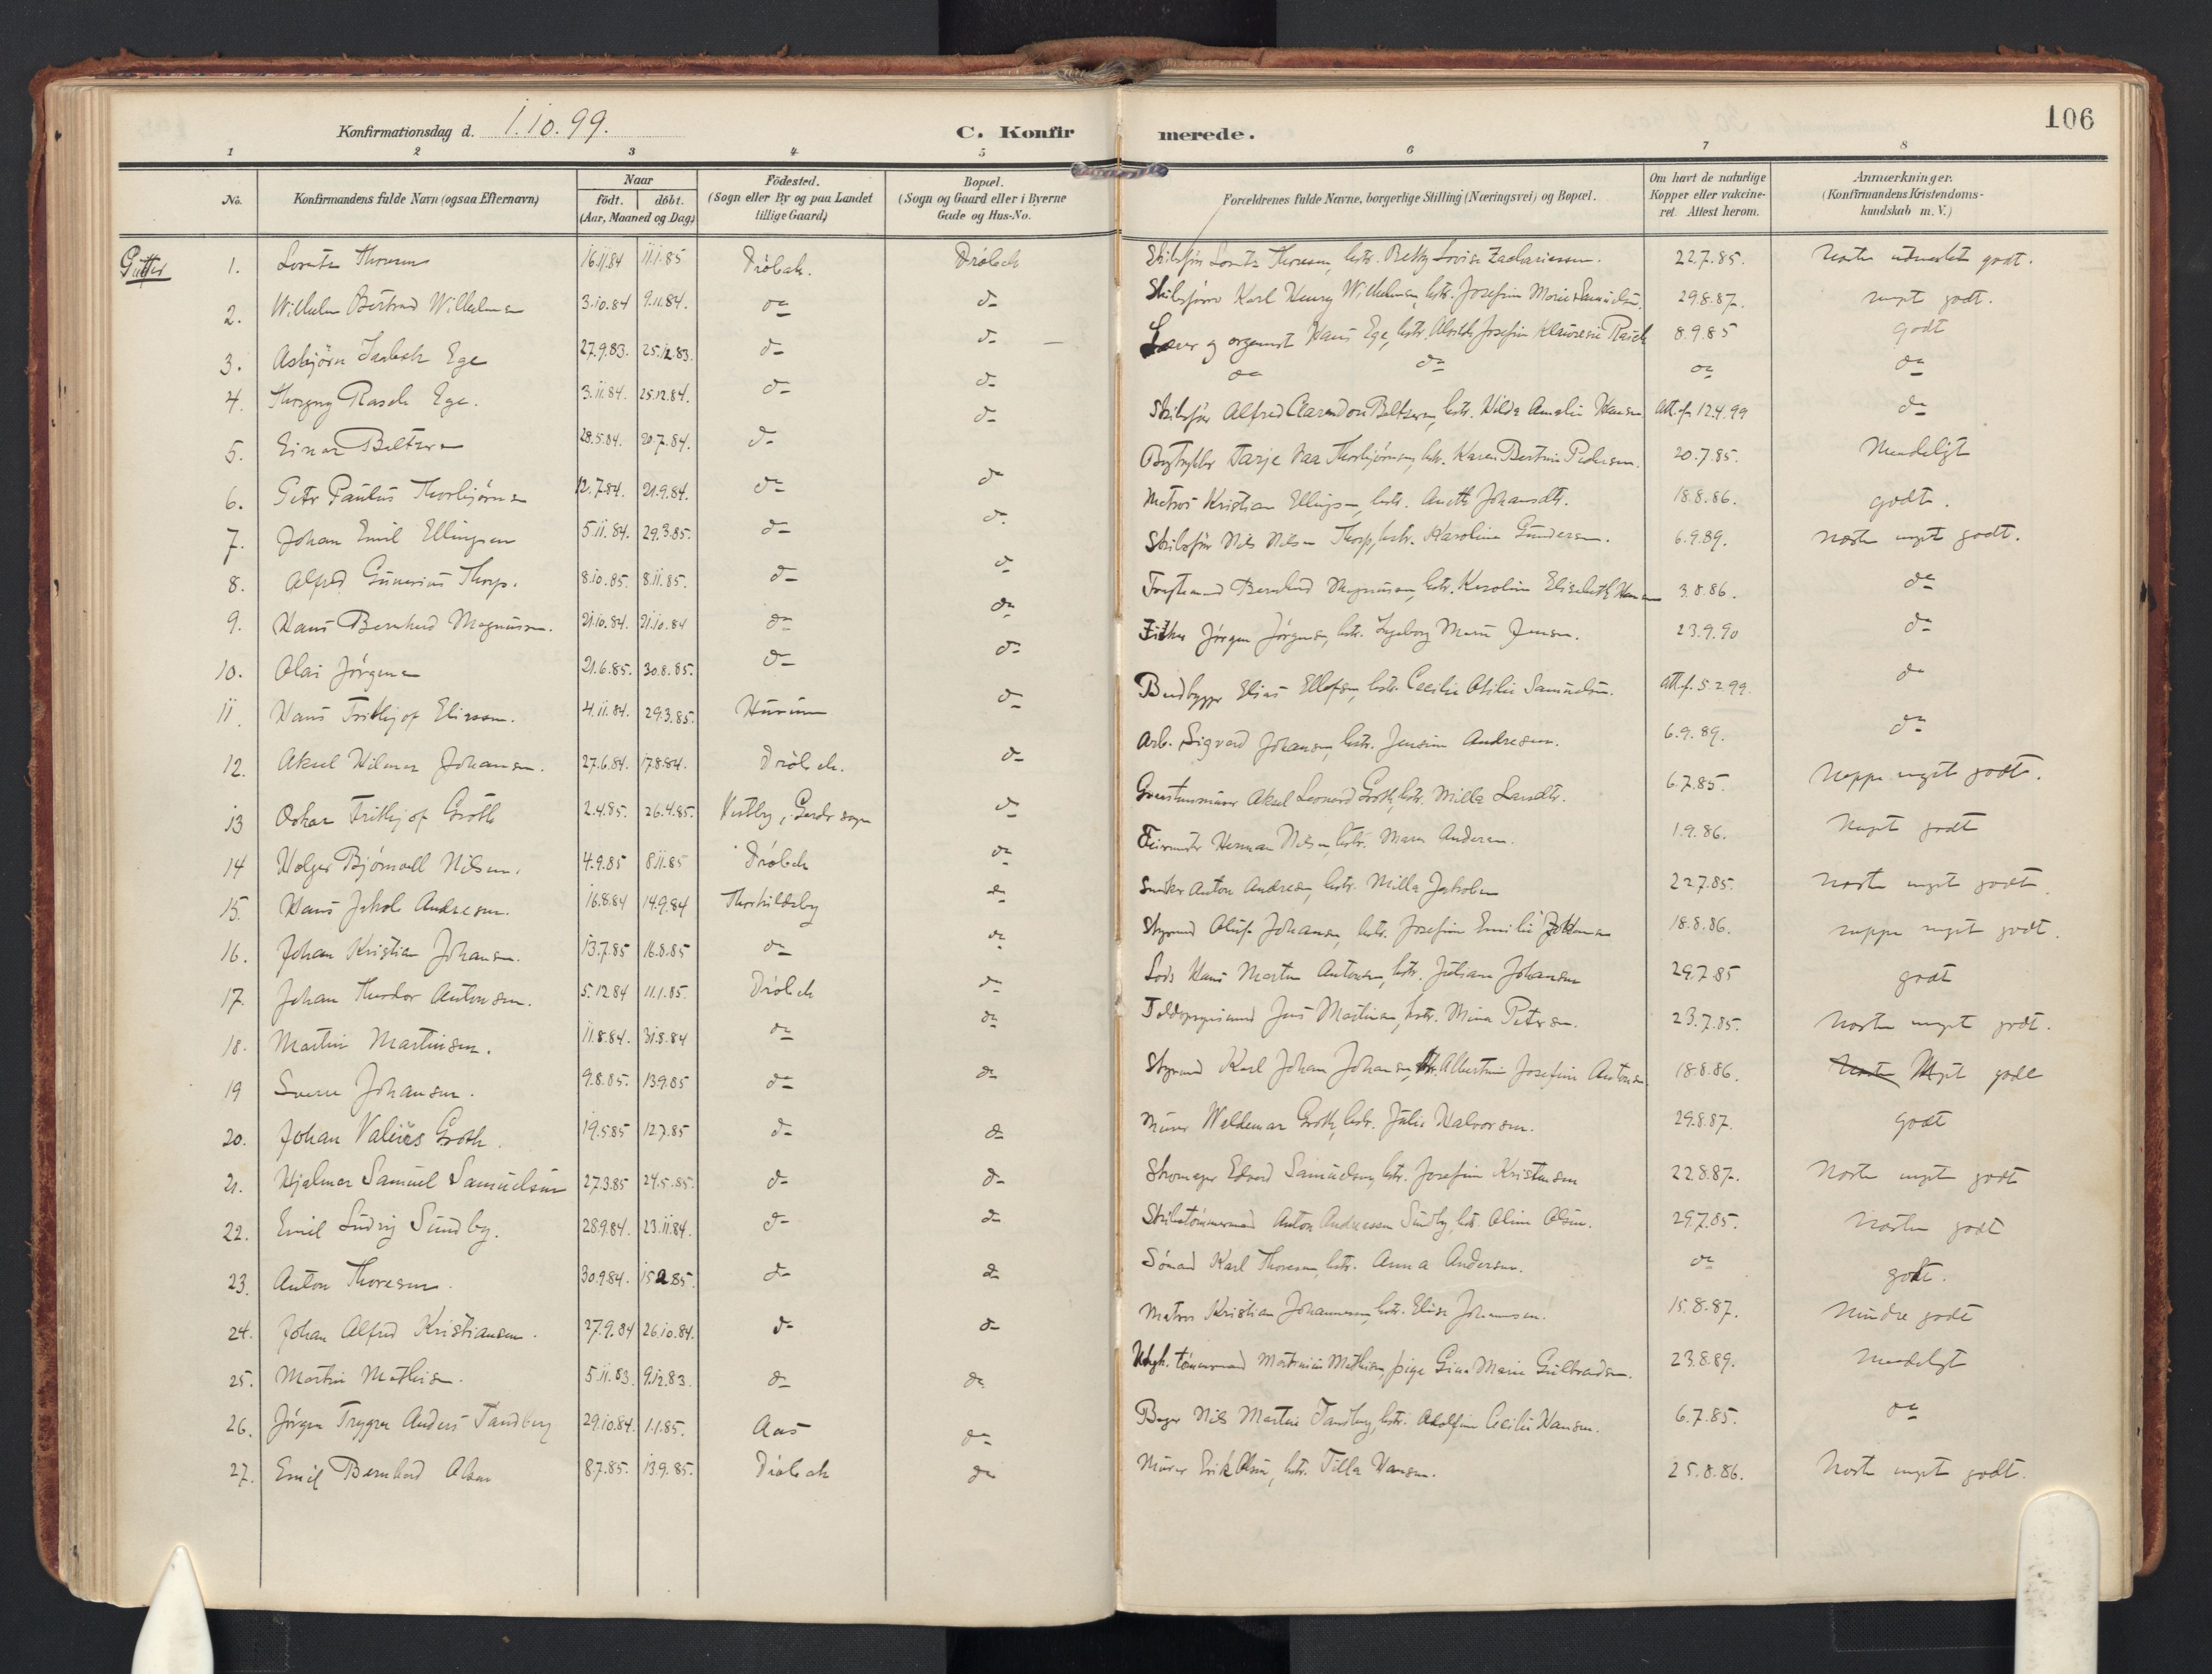 106
Konfirmationsdag d. 1.10.99. C. Konfirmerede.
1 2 3 4 5 6 7 8
No. Konfirmandens fulde Navn (ogsaa Efternavn) Naar födt. döbt. (Aar, Maaned og Dag) Födested. (Sogn eller By og paa Landet tillige Gaard) Bopæl. (Sogn og Gaard eller i Byerne Gade og Hus-No. Forældrenes fulde Navne, borgerlige Stilling (Næringsvei) og Bopæl. Om havt de naturlige Kopper eller vakcineret. Attest herom. Anmærkninger. (Konfirmandens Kristendomskundskab m. V.)
Gutter
1. Lorentz Thoresen 16.11.84 11.1.85 Drøbak. Drøbak Skibsfør Lorentz Thoresen, hstr. Betty Lovise Zachariassen. 22.7.85. Næsten udmerket godt.
2. Wilhelm Bertrand Wilhelmsen 3.10.84 9.11.84. do do Skibsfører Karl Henry Wilhelmsen, hstr. Josefine Marie Samuelsen. 29.8.87. meget godt.
3. Asbjörn Ege 27.9.83. 25.12.83. do do Lærer og organist Hans Ege, hstr. Josefine Rasch 8.9.85 godt
4. Thorgny Rasch Ege. 3.11.84. 25.12.84. do do do do do do
5. Einar Beltzen 28.5.84. 20.7.84. do do Skibsfør Alfred Clarendon Beltzen, hstr. Hilda Amalie Hansen Att. f. 12.4.99 do
6. Petr Paulus Thorbjörnsen 12.7.84. 21.9.84. do do Tarje Aaa Thorbjörnsen, hstr. Karen Bertine Pedersen. 20.7.85. Mādeligt
7. Johan Emil Ellingsen 5.11.84. 29.3.85. do do Matros Kristian Ellingsen, hstr. Anette Johansdtr. 18.8.86. godt.
8. Alfred Gunerius Thorp. 8.10.85. 8.11.85. do do Skibsfør Nils Nilsen Thorp, hstr. Karoline Gundersen. 6.9.89. næsten meget godt.
9. Hans Bernhard Magnussen. 21.10.84. 21.10.84 do do Bernhard Magnussen, hstr. Karoline Elisabeth Hansen 3.8.86. do
10. Olai Jörgensen 21.6.85. 30.8.85. do do Fisker Jörgen Jörgensen, hstr. Ingeborg Marie Jensen. 23.9.90 do
11. Hans Frithjof Eliassen. 4.11.84. 29.3.85. Hurum do Elias Ellefsen, hstr. Cecilie Otilie Samuelsen. Att. f. 5.2.99. do
12. Aksel Hilmar Johansen. 27.6.84. 17.8.84. Drøbak. do Arb. Sigvard Johansen, hstr. Jensine Andresen. 6.9.89. do
13 Oskar Frithjof Groth 2.4.85. 26.4.85. Vestby, Garder sogn do Aksel Leonard Groth, hstr. Milla Larsdtr. 6.7.85. Neppe meget godt.
14 Holger Björnvall Nilsen. 4.9.85 8.11.85 Drøbak do Herman Nilsen, hstr. Maren Andersen. 1.9.86. Meget godt
15. Hans Jakob Andresen. 16.8.84 14.9.84 Thorkildsby do Snekker Anton Andresen, hstr. Milla Jakobsen 22.7.85. næsten meget godt.
16. Johan Kristian Johansen. 13.7.85 16.8.85 do do Styrmand Oluf Johansen, hstr. Josefine Emilie 18.8.86. neppe meget godt.
17. Johan Theodor Antonsen. 5.12.84 11.1.85. Drøbak do Lods Hans Martin Antonsen, hstr. Juliane Johansen 29.7.85 godt
18. Martin Martinsen. 11.8.84. 31.8.84 do do Jens Martinsen, hstr. Mina Petersen. 23.7.85. Næsten meget godt.
19 Sverre Johansen. 9.8.85. 13.9.85 do do Styrmand Karl Johan Johansen, hstr. Albertine Josefine Antonsen. 18.8.86. Næsten Meget godt
20. Johan Valerius Groth. 19.5.85 12.7.85 do do Murer Waldemar Groth, hstr. Julie Halvorsen. 29.8.87. godt
21. Hjalmar Samuel Samuelsen 27.3.85 24.5.85. do do Skomager Edvard Samuelsen, hstr. Josefine Kristensen 22.8.87. Næsten meget godt
22. Emil Ludvig Sundby. 28.9.84. 23.11.84. do do Skibstömmermand Anton Andreassen Sundby, hstr. Oline Olsen. 29.7.85. Næsten godt
23. Anton Thoresen. 30.9.84. 15.2.85. do do Sömand Karl Thoresen, hstr. Anna Andersen. do godt.
24. Johan Alfred Kristiansen. 27.9.84 26.10.84. do do Matros Kristian Johannesen, hstr. Elise Johannesen. 15.8.87. mindre godt
25. Martin Mathisen. 5.11.83. 9.12.83. do do Ugh. tömmermand Martinius Mathisen, pige Gina Marie Gulbrandsen. 23.8.89. Mādeligt
26. Jörgen Trygve Anders Tandberg 29.10.84. 1.1.85. Aas do Bager Nils Martin Tandberg, hstr. Adolfine Cecilie Hansen. 6.7.85. do
27. Emil Bernhard Olsen 8.7.85. 13.9.85. Drøbak do Murer Erik Olsen, hstr. Tilla Hansen. 25.8.86. Næsten meget godt.